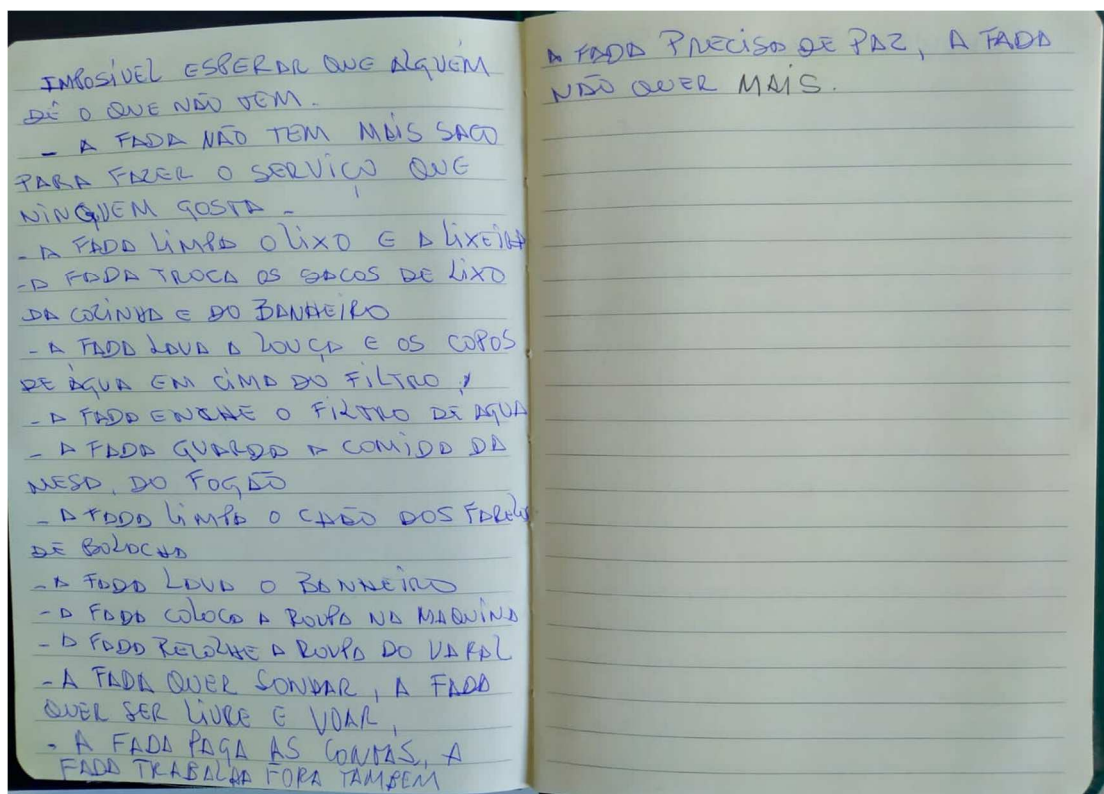 IMPOSÍVEL ESPERAR QUE ALGUÉM
DÊ O QUE NÃO TEM.
- A FADA NÃO TEM MAIS SACO
PARA FAZER O SERVIÇO QUE
NINGUEM GOSTA -
- A FADA LIMPA O LIXO E A LIXEIRA
- A FADA TROCA OS SACOS DE LIXO
DA COZINHA E DO BANHEIRO
- A FADA LAVA A LOUÇA E OS COPOS
DE ÁGUA EM CIMA DO FILTRO,
- A FADA ENCHE O FILTRO DE AGUA
- A FADA GUARDA A COMIDA DA
MESA, DO FOGÃO
- A FADA LIMPA O CHÃO DOS FARELOS
DE BOLACHA
- A FADA LAVA O BANHEIRO
- A FADA COLOCA A ROUPA NA MAQUINA
- A FADA RECOLHE A ROUPA DO VARAL
- A FADA QUER SONHAR, A FADA
QUER SER LIVRE E VOAR,
- A FADA PAGA AS CONTAS, A
FADA TRABALHA FORA TAMBEM
A FADA PRECISA DE PAZ, A FADA
NÃO QUER MAIS.